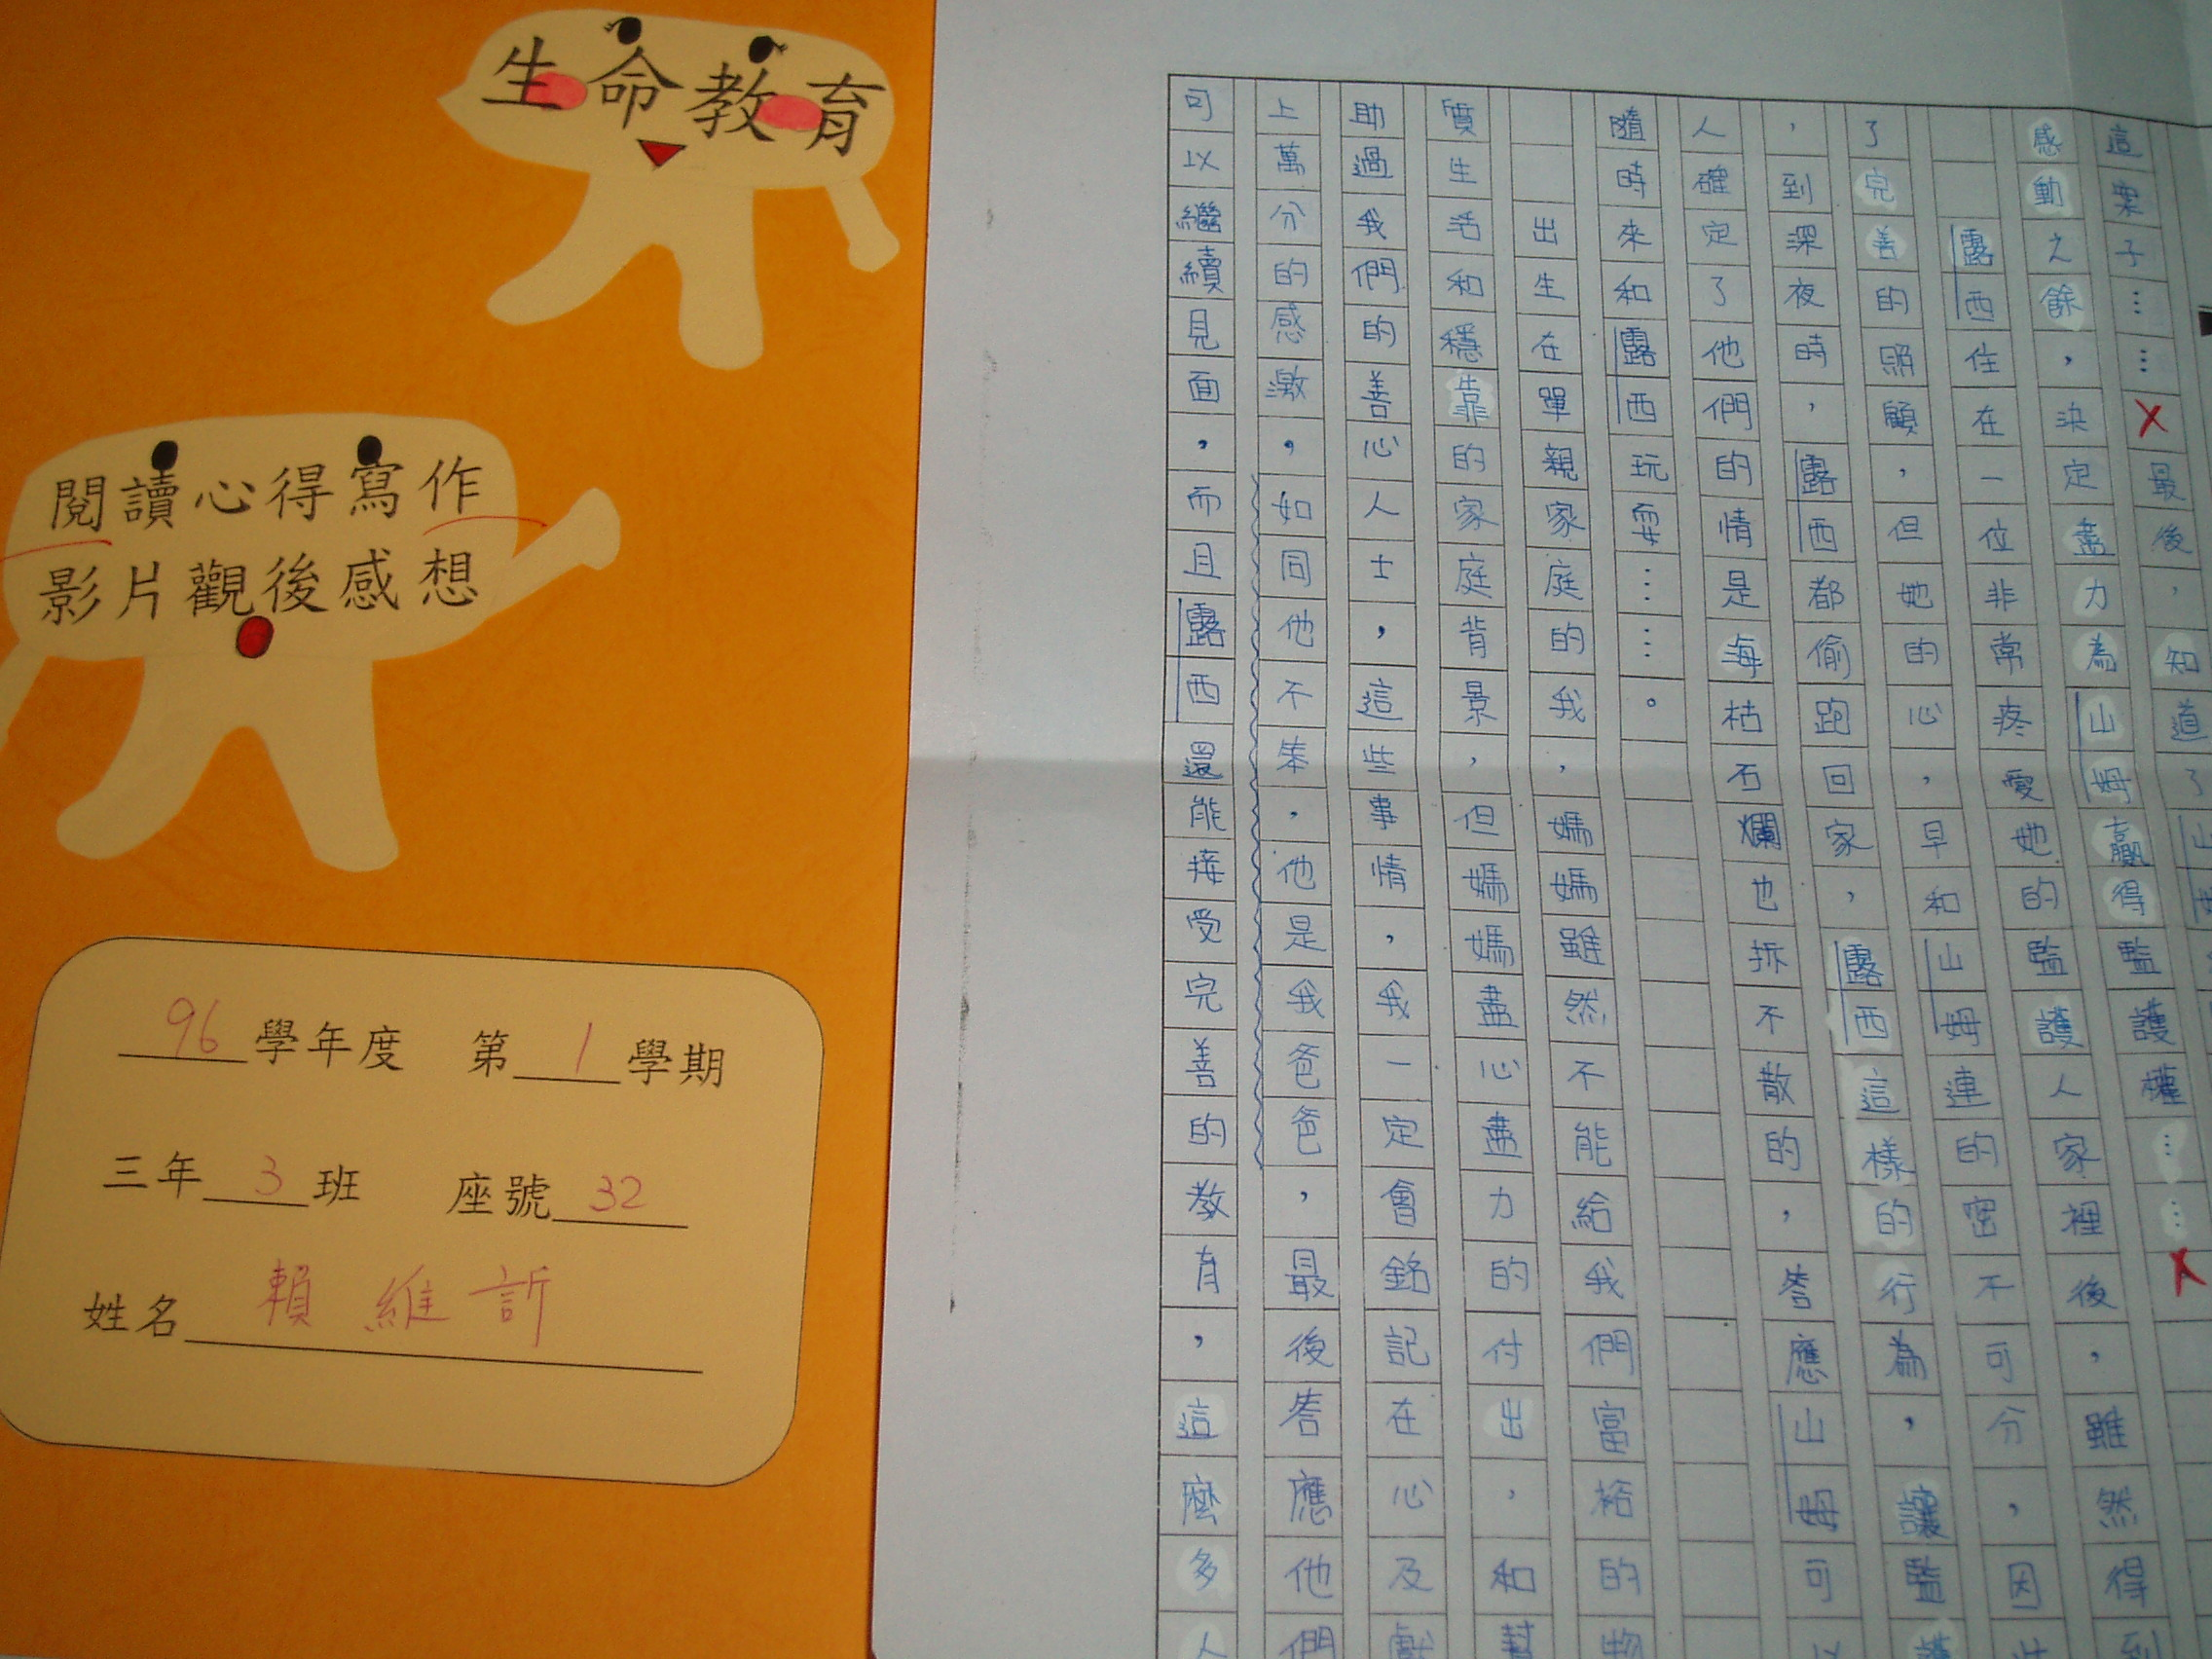 生命教育
閱讀心得寫作
影片觀後感想
96學年度 第1學期
三年3班 座號32
姓名 賴維訢
這案子……最後，知道了山姆
感動之餘，決定盡力為山姆贏得監護權……
露西住在一位非常疼愛她的監護人家裡後，雖然得到
了完善的照顧，但她的心，早和山姆連的密不可分，因此
，到深夜時，露西都偷跑回家，露西這樣的行為，讓監護
人確定了他們的情是海枯石爛也拆不散的，答應山姆可以
隨時來和露西玩耍……。
出生在單親家庭的我，媽媽雖然不能給我們富裕的物
質生活和穩靠的家庭背景，但媽媽盡心盡力的付出，和幫
助過我們的善心人士，這些事情，我一定會銘記在心及獻
上萬分的感激，如同他不笨，他是我爸爸，最後答應他們
可以繼續見面，而且露西還能接受完善的教育，這麼多人